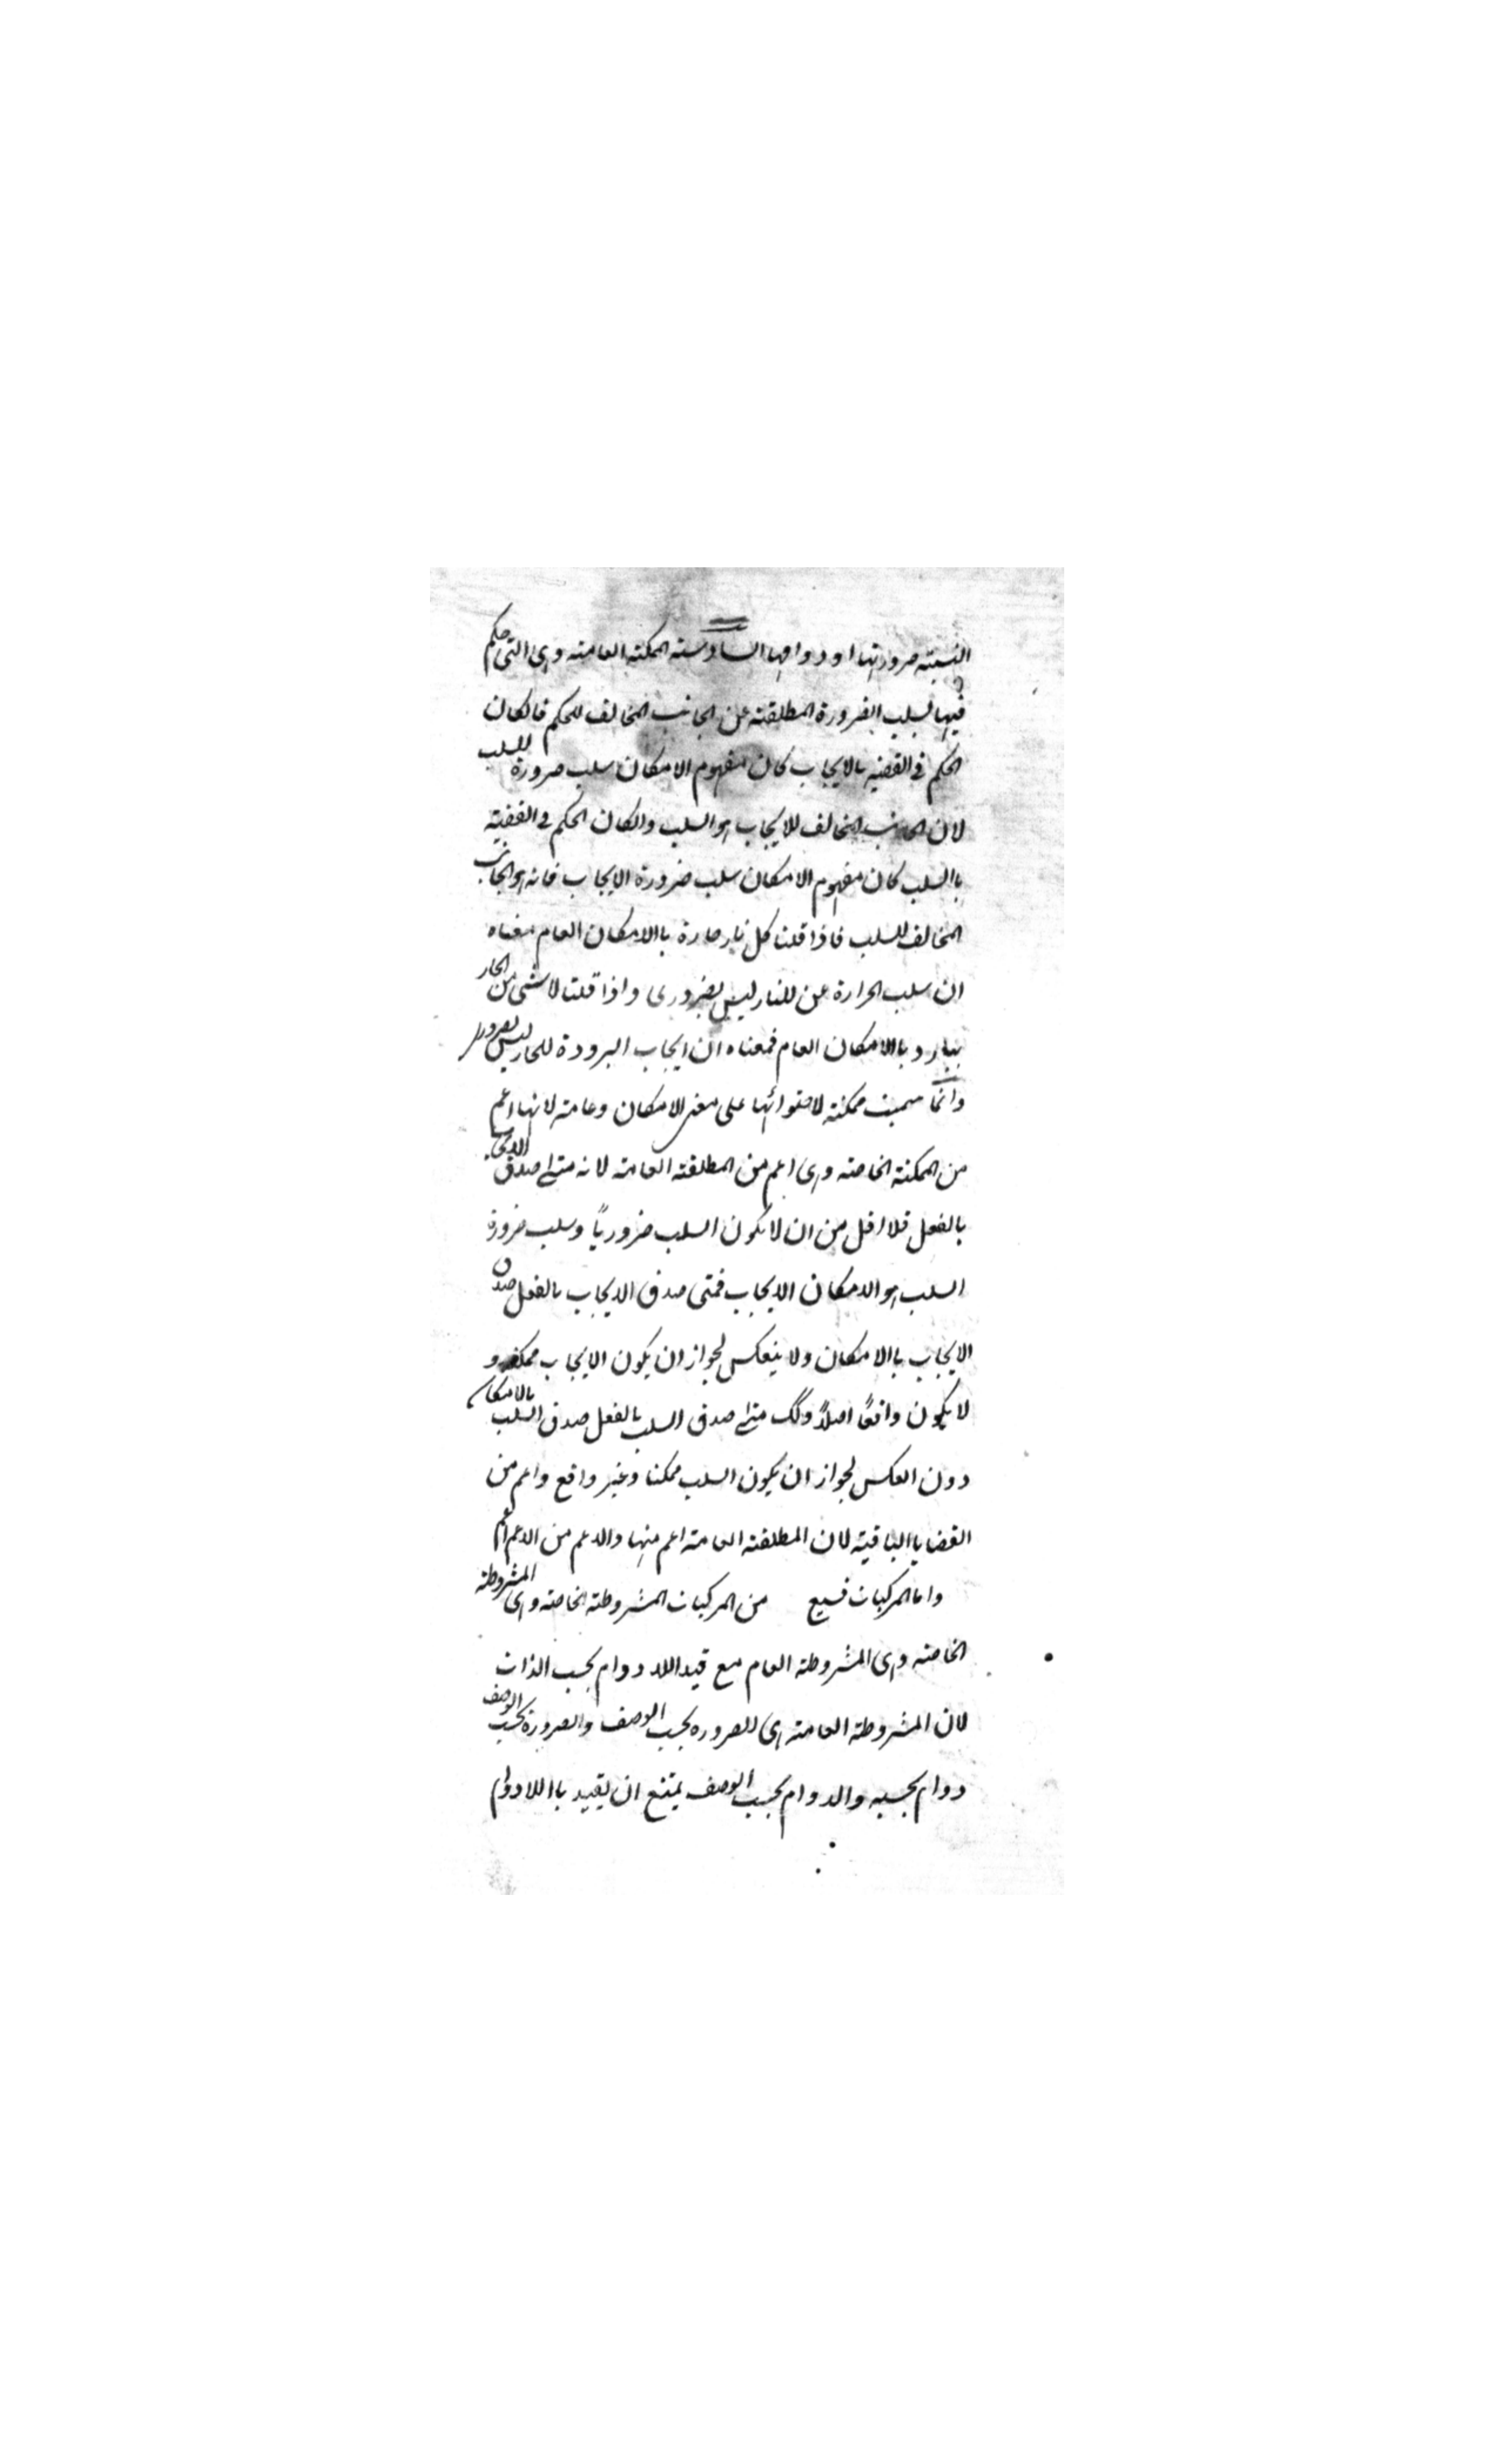 النسبته ضرورتها او دوامها السادسته الممكنته العامته وهى التى حكم
فيها بسلب الضرورة المطلقته عن الجانب المخالف للحكم فانكان
الحكم فى القضيه بالايجاب كان مفهوم الامكان سلب ضرورة للسلب
لان الجانب المخالف للايجاب هو السلب وانكان الحكم فى القضيته
باالسلب كان مفهوم الامكان سلب ضرورة الايجاب فانه هو الجانب
المخالف للسلب فاذا قلنا كل نار حارة باالامكان العام معناه
ان سلب الحرارة عن للنار ليس بضرورى واذا قلنا لا شىء من الحار
ببارد باالامكان العام فمعناه ان ايجاب البرودة للحار ليس بضرورى
وانما سميت ممكنته لاحتوائها على معنى الامكان وعامته لانها اعم
من الممكنته الخاصته وهى اعم من المطلقته العامته لانه متى صدق الايجاب
بالفعل فلا اقل من ان لا يكون السلب ضروريًا وسلب ضرورة
السلب هو الامكان الايجاب فمتى صدق الايجاب بالفعل صدق
الايجاب باالامكان ولا ينعكس لجواز ان يكون الايجاب ممكن و
لا يكون واقعًا اصلاً وكك متى صدق السلب بالفعل صدق السلب بالامكان
دون العكس لجواز ان يكون السلب ممكنا وغير واقع واعم من
القضايا الباقيته لان المطلقته العامته اعم منها والاعم من الاعم اعم
واما المركبات فسبع من المركبات المشروطته الخاصته وهى المشروطته
الخاصته وهى المشروطته العام مع قيد اللا دوام بحسب الذات
لان المشروطته العامته هى الضروره بحسب الوصف والضرورة بحسب الوصف
دوام بحسبه والدوام بحسب الوصف يمتنع ان يقيد باللا دوام